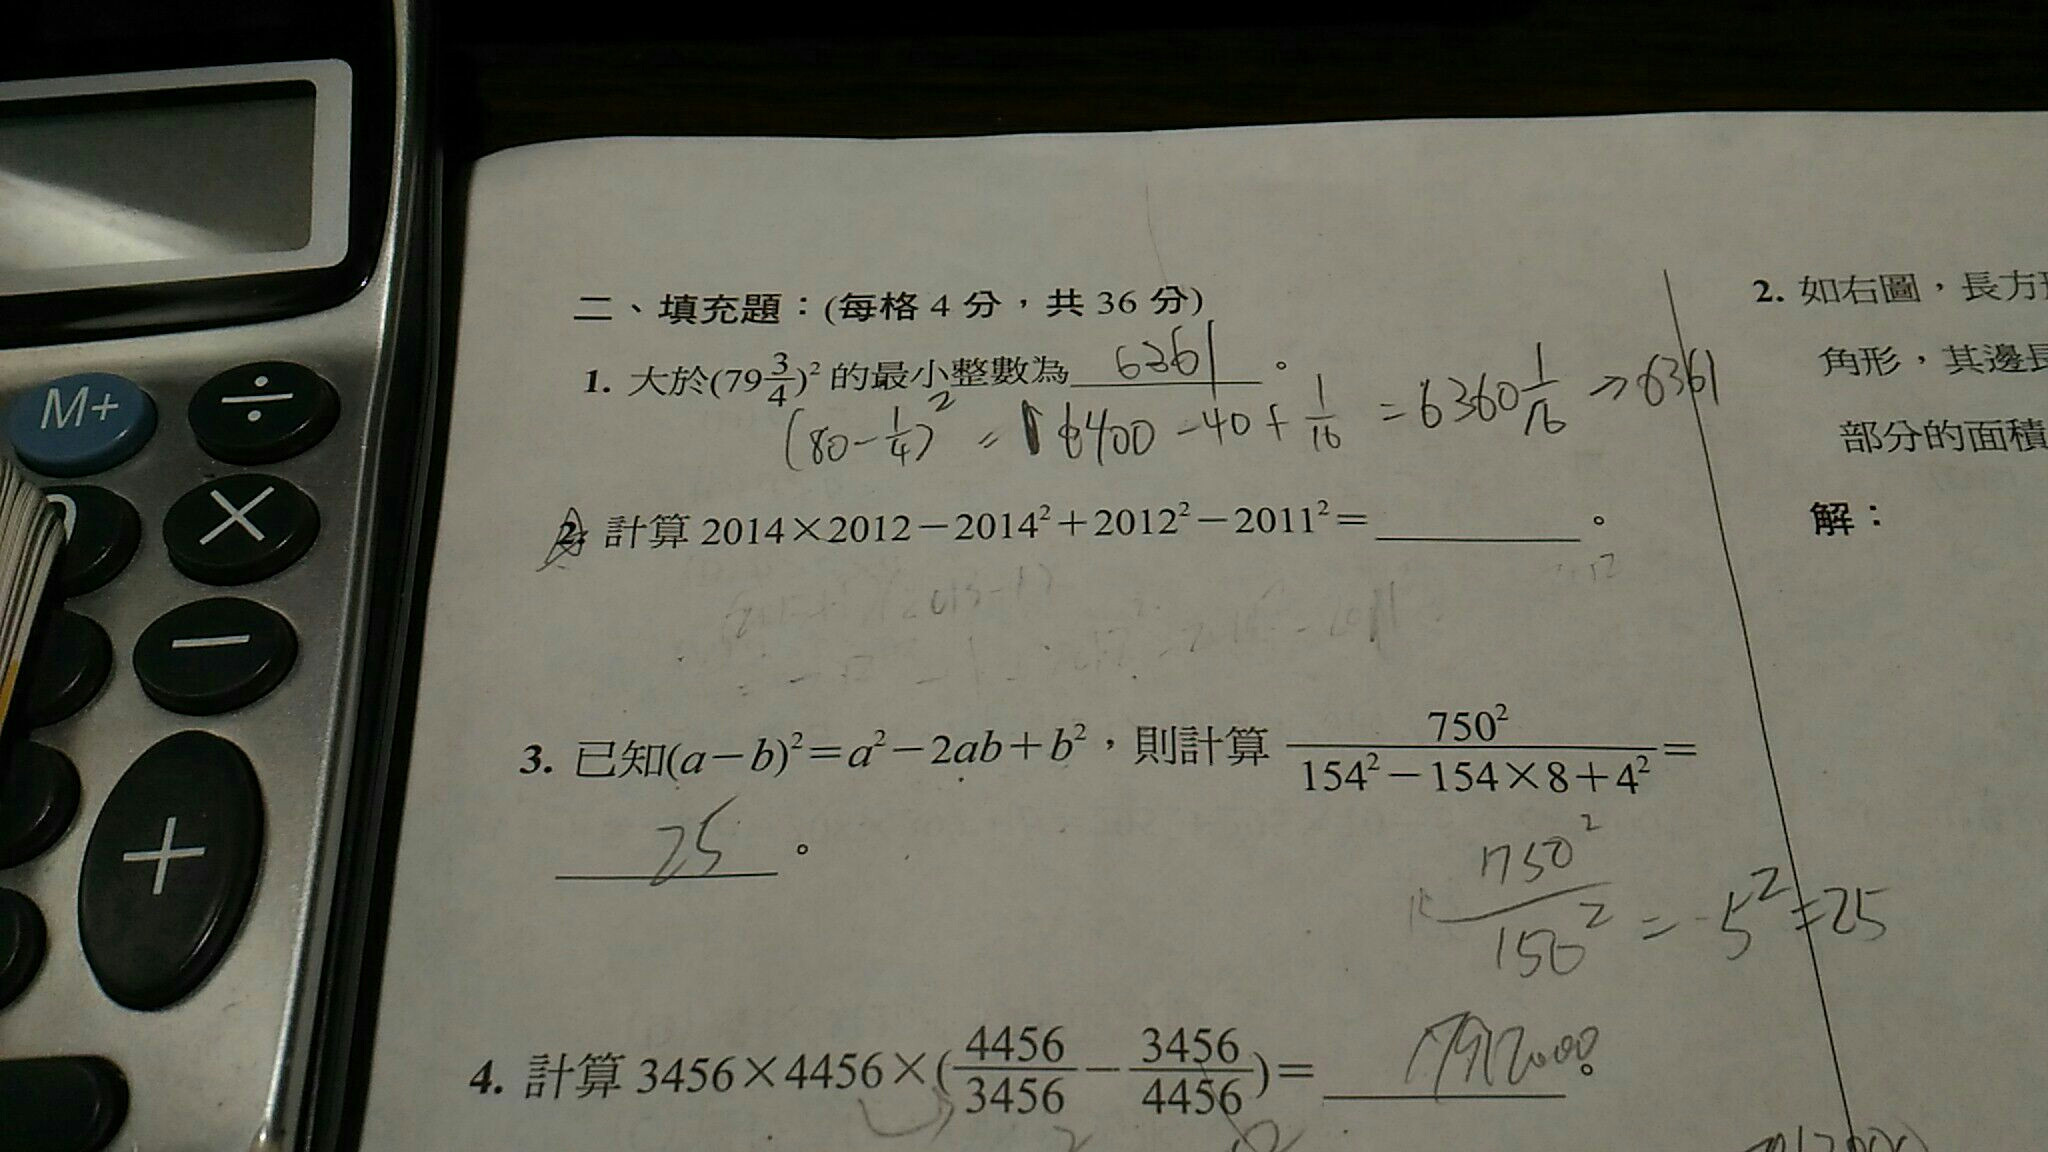 M+ ÷
×
−
+
二、填充題：(每格 4 分，共 36 分)
1. 大於(79 3/4)² 的最小整數為 6361 。
(80 - 1/4)² = 6400 - 40 + 1/16 = 6360 1/16 → 6361
2. 計算 2014×2012－2014²＋2012²－2011²＝ 。
3. 已知(a－b)²＝a²－2ab＋b²，則計算 750²/(154²－154×8＋4²)＝
25 。
750²/150² = 5² = 25
4. 計算 3456×4456×(4456/3456－3456/4456)＝ 7912000 。
2. 如右圖，長方形
角形，其邊長
部分的面積
解：